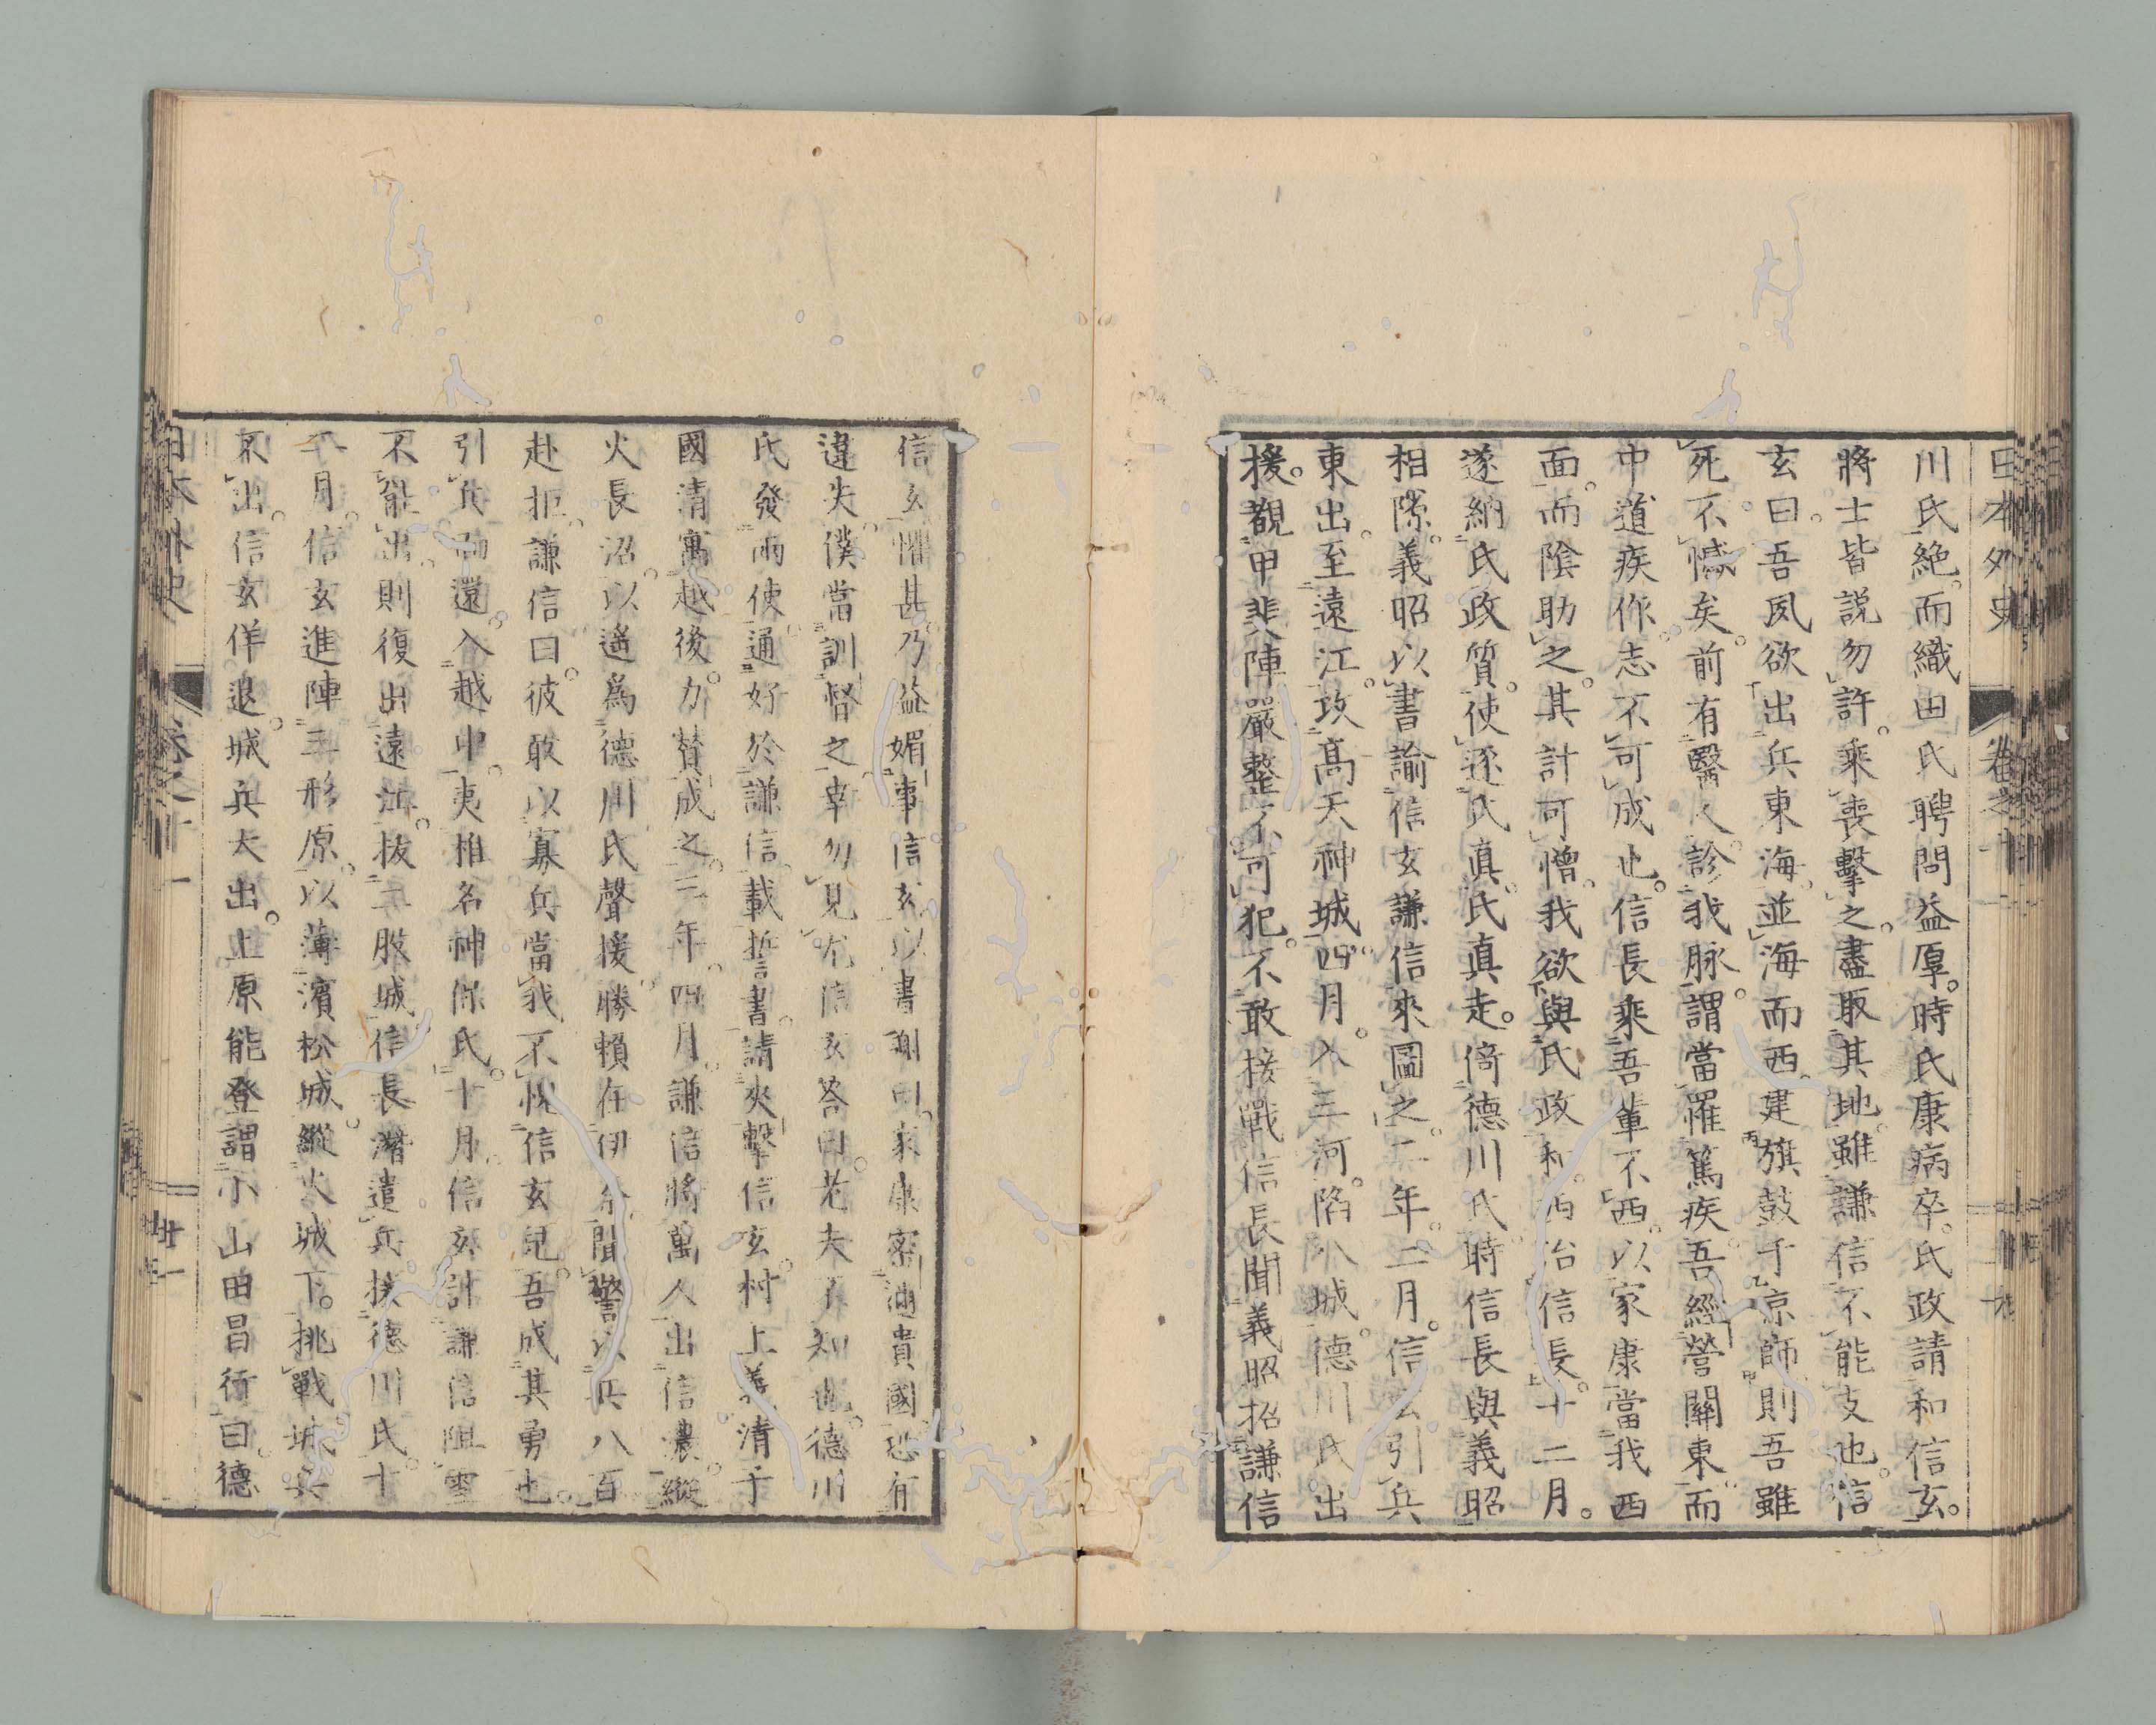 日本外史 卷之十一
川氏絶。而織田氏聘問益厚。時氏康病卒。氏政請和信玄。
將士皆説勿許。乘喪擊之。盡取其地。雖謙信不能支也。信
玄曰。吾夙欲出兵東海。並海而西。建旗鼓于京師。則吾雖
死不憾矣。前有醫人。診我脉。謂當罹篤疾。吾經營關東。而
中道疾作。志不可成也。信長乘吾軰不西。以家康當我西
面。而陰助之。其計可憎。我欲與氏政和。西治信長。十二月。
遂納氏政質。使逐氏真。氏真走。倚德川氏。時信長與義昭
相隙。義昭以書諭信玄謙信來圖之。二年。二月。信玄引兵
東出。至遠江。攻高天神城。四月。入三河。陷八城。德川氏出
援。覩甲斐陣嚴整不可犯。不敢接戰。信長聞義昭招謙信
信玄。懼甚。乃益媚事信玄。以書謝曰。家康密邇貴國。恐有
違失。僕當訓督之。幸勿見尤。信玄答曰。老夫不知也。德川
氏發兩使。通好於謙信。載誓書。請夾擊信玄。村上義清于
國清寓越後。力賛成之。三年。四月。謙信將萬人出信濃。縱
火長沼。以遙爲德川氏聲援。勝賴在伊奈。聞警。以兵八百
赴拒。謙信曰。彼敢以寡兵當我。不忱信玄兒。吾成其勇也。
引兵而還。入越中。夷椎名神保氏。十月。信玄計謙信阻雪
不能出。則復出遠江。拔二股城。信長潛遣兵援德川氏。十
二月。信玄進陣三形原。以薄濱松城。縱火城下。挑戰。城兵
不出。信玄佯退。城兵大出。上原能登謂小山田昌行曰。德
日本外史 卷之十一 廿一